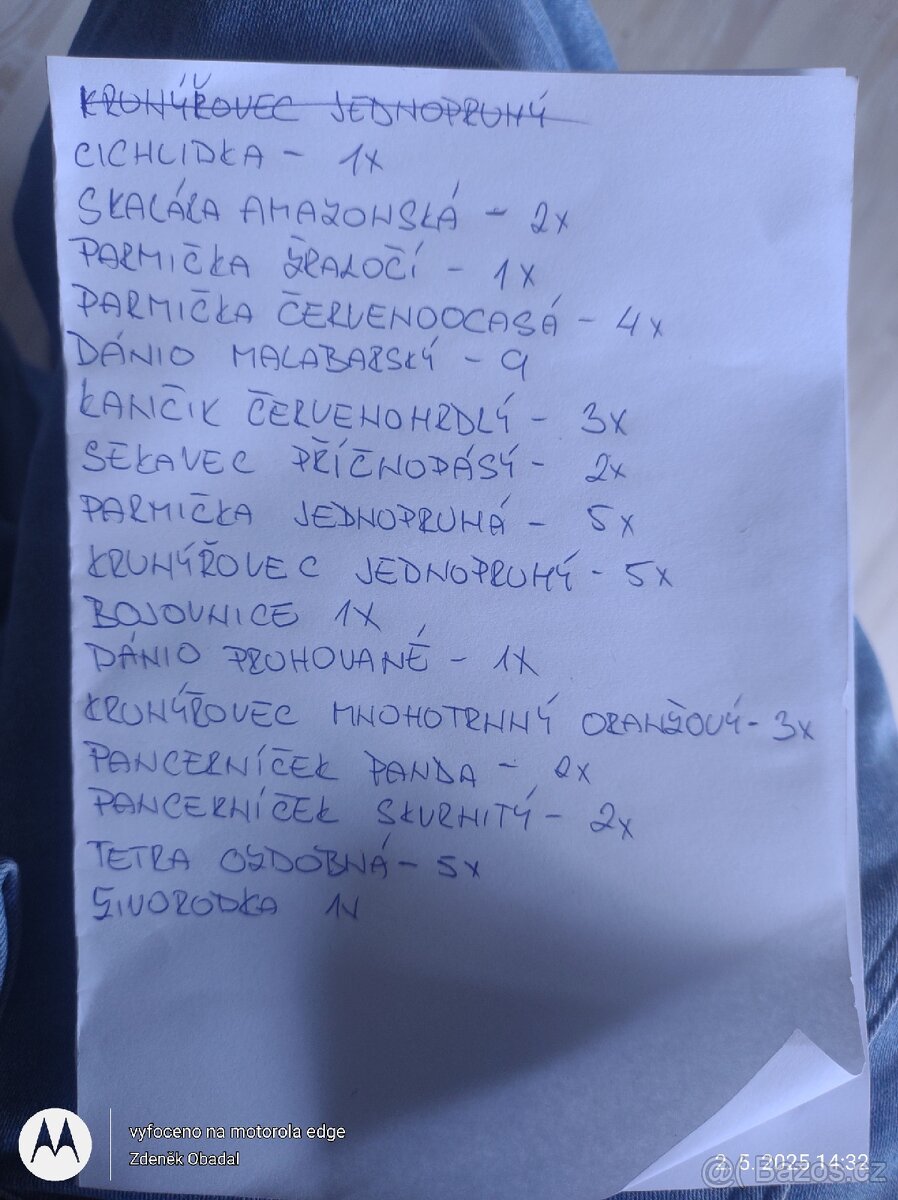 KRUNÝŘOVEC JEDNOPRUHÝ
CICHLIDKA - 1X
SKALÁRA AMAZONSKÁ - 2X
PARMIČKA ŽRALOČÍ - 1X
PARMIČKA ČERVENOOCASÁ - 4X
DÁNIO MALABARSKÝ - 9
KANČIK ČERVENOHRDLÝ - 3X
SEKAVEC PŘÍČNOPÁSÝ - 2X
PARMIČKA JEDNOPRUHÁ - 5X
KRUNÝŘOVEC JEDNOPRUHÝ - 5X
BOJOVNICE 1X
DÁNIO PRUHOVANÉ - 1X
KRUNÝŘOVEC MNOHOTRNNÝ ORANŽOVÝ - 3X
PANCERNÍČEK PANDA - 2X
PANCERNÍČEK SKVRNITÝ - 2X
TETRA OZDOBNÁ - 5X
ŽIVORODKA 1X
vyfoceno na motorola edge
Zdeněk Obadal
2. 5. 2025 14:32
@ Bazos.cz